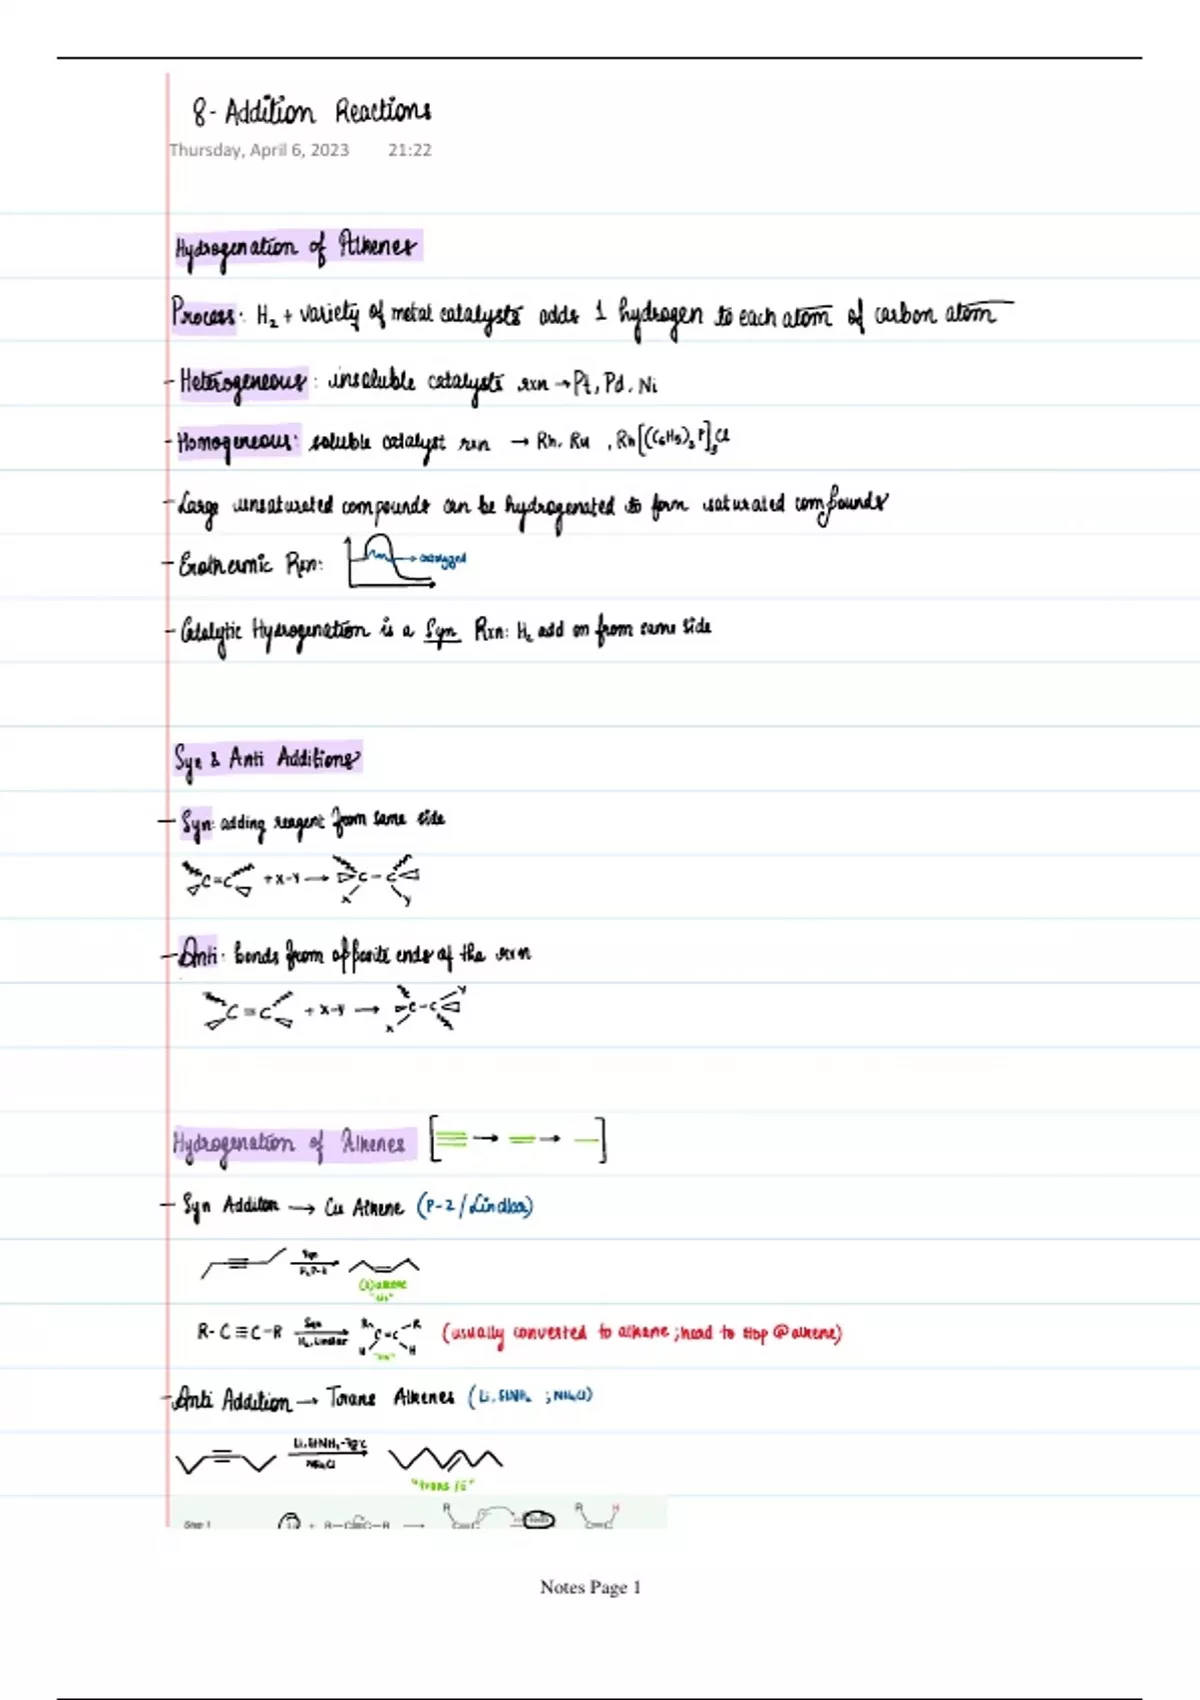 8- Addition Reactions
Thursday, April 6, 2023 21:22
Hydrogenation of Alkenes
Process: H₂ + variety of metal catalysts adds 1 hydrogen to each atom of carbon atom
- Heterogeneous: insoluble catalysts rxn → Pt, Pd, Ni
- Homogeneous: soluble catalyst rxn → Rh, Ru, Rh[(C₆H₅)₃P]₃Cl
- Large unsaturated compounds can be hydrogenated to form saturated compounds
- Exothermic Rxn: → catalyzed
- Catalytic Hydrogenation is a Syn Rxn: H₂ add on from same side
Syn & Anti Additions
- Syn: adding reagent from same side
C=C + X-Y → C-C X Y
- Anti: bonds from opposite ends of the rxn
C=C + X-Y → C-C Y X
Hydrogenation of Alkenes [≡ → = → -]
- Syn Addition → Cis Alkene (P-2/Lindlar)
Syn
H₂, P-2
alkene
"cis"
R-C≡C-R Syn H₂, Lindlar R C=C R H H (usually converted to alkane; hard to stop @ alkene)
- Anti Addition → Trans Alkenes (Li, EtNH₂; NH₄Cl)
Li, EtNH₂ -78°C
NH₄Cl
"trans/E"
Step 1 Li + R-C≡C-R → R C=C R H
Notes Page 1